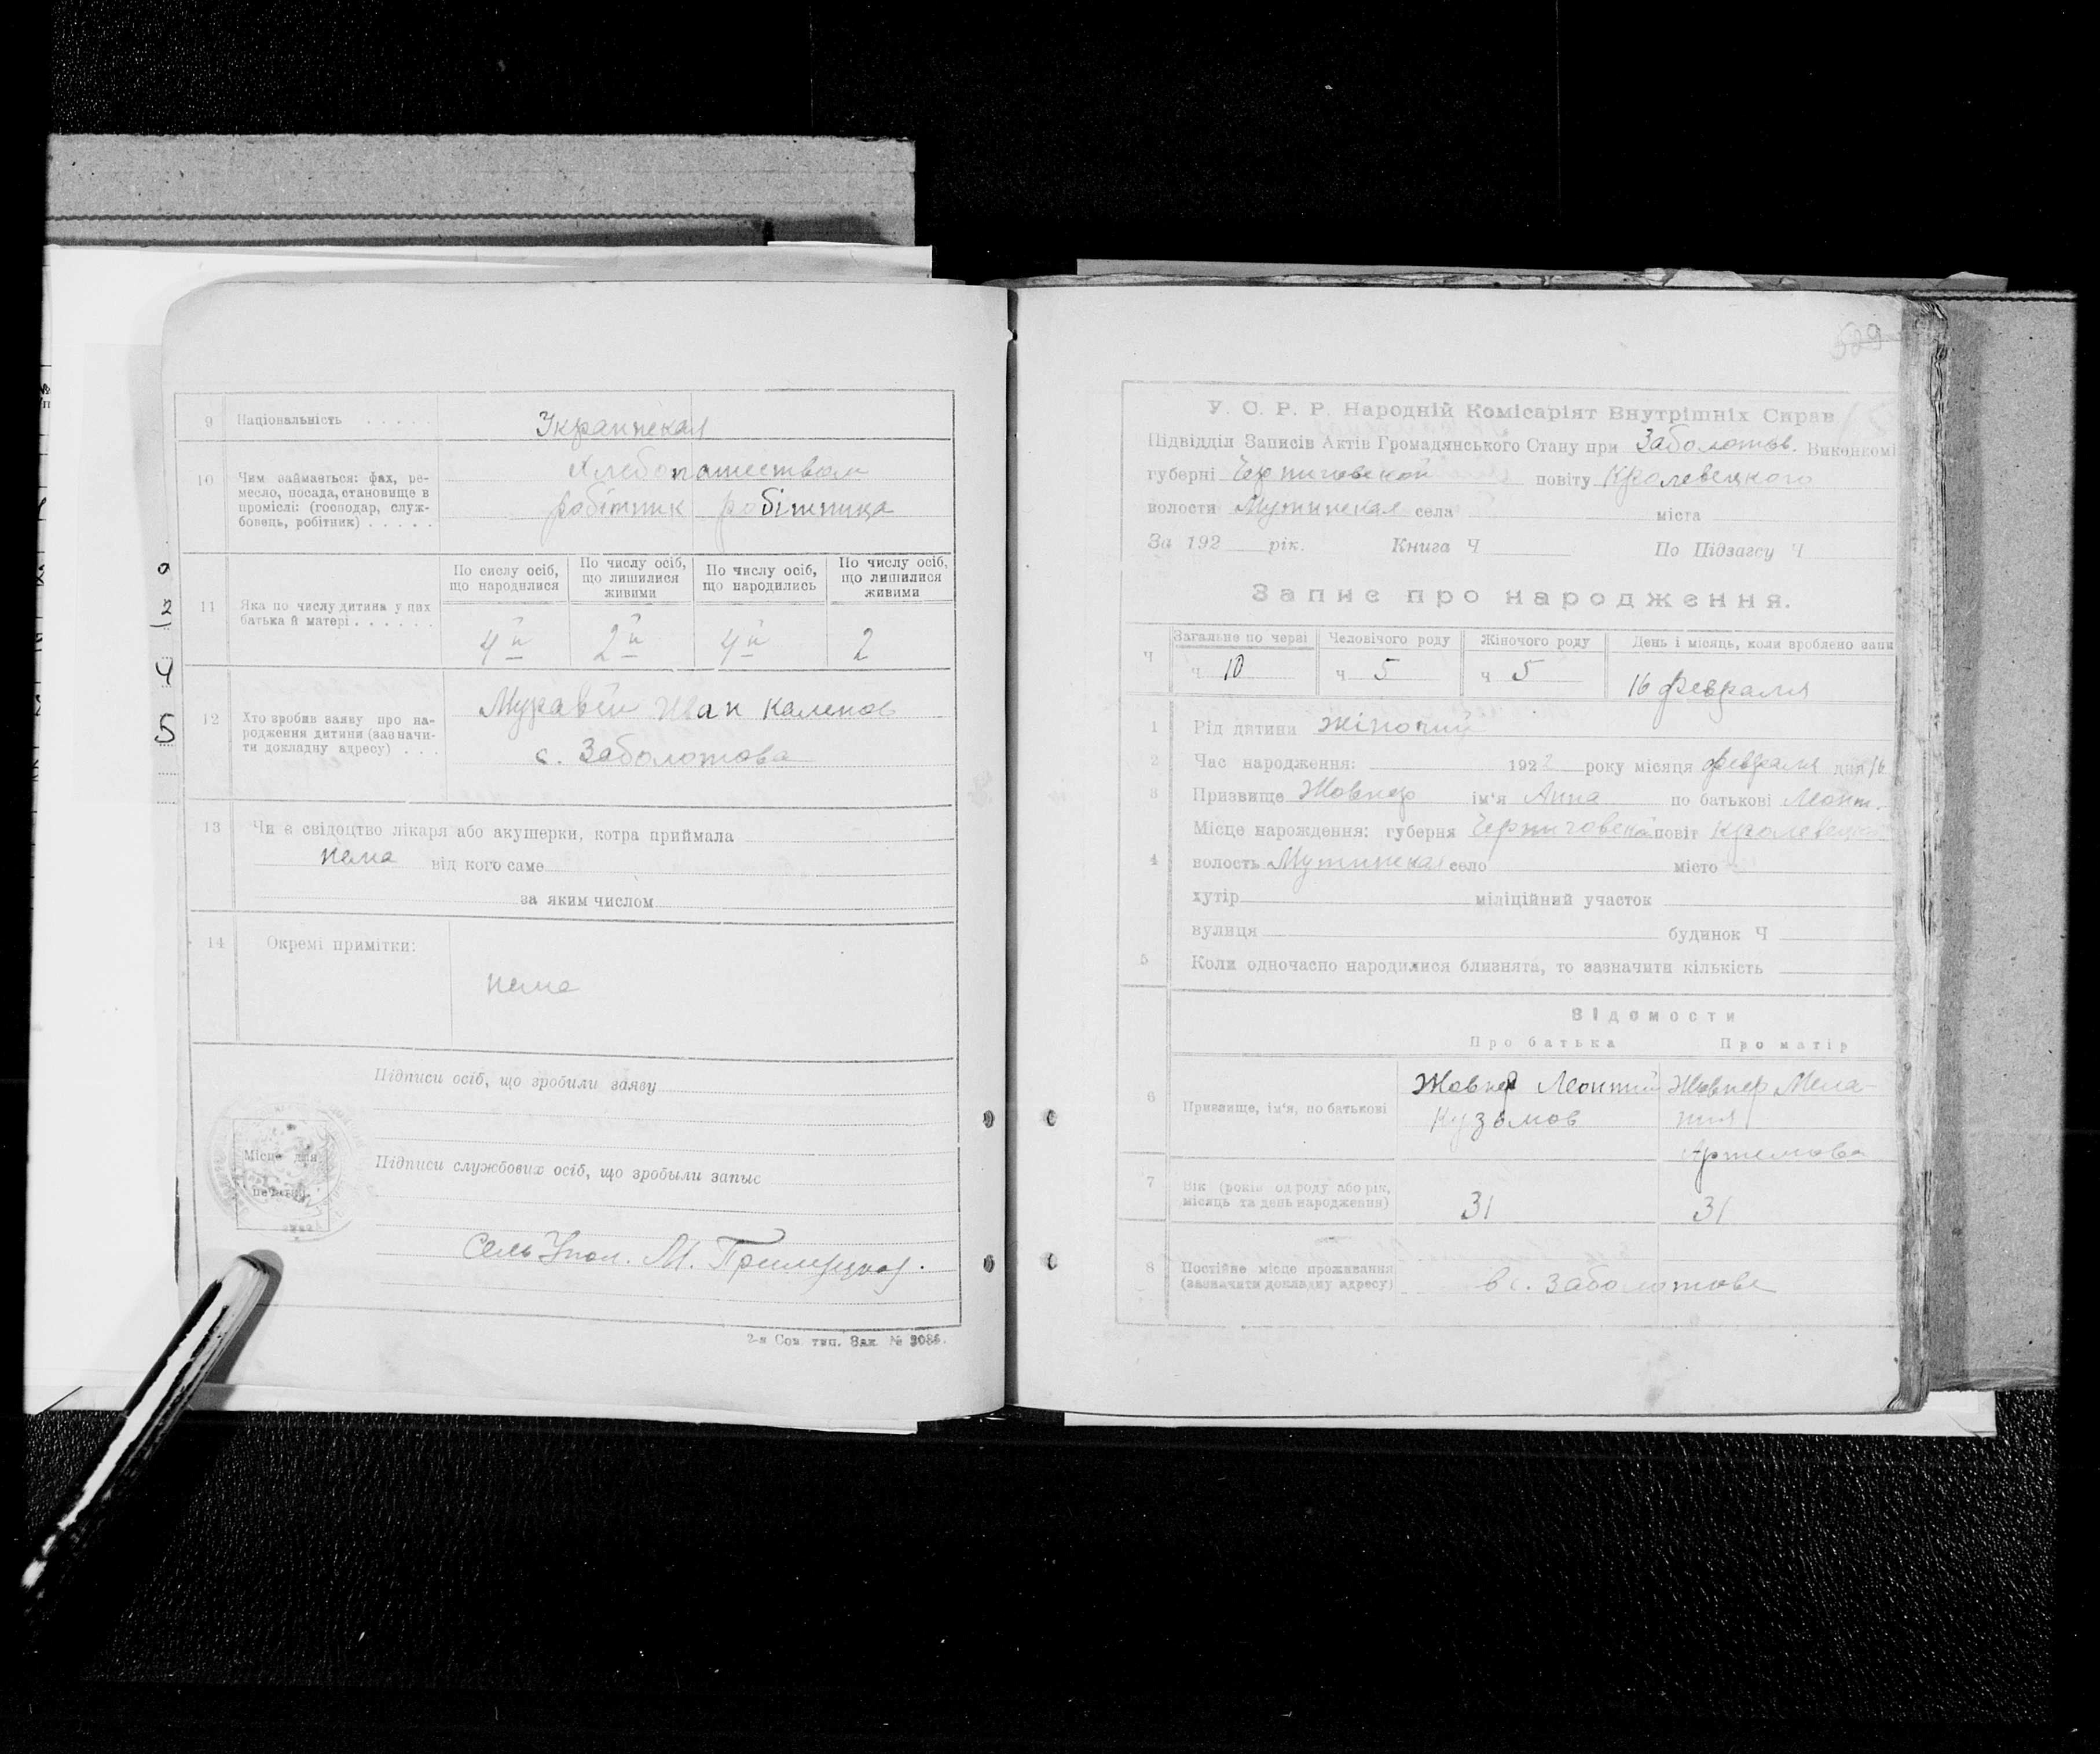 9 Національність Украинская
10 Чим займається: фах, ре-
месло, посада, становище в
проміслі: (господар, служ-
бовець, робітник)
Хлебопашеством
робітник робітница
11 Яка по числу дитина у цих
батька й матері
По сислу осіб,
що народилися
По числу осіб,
що лишилися
живими
По числу осіб,
що народились
По числу осіб,
що лишилися
живими
4й 2й 4й 2
12 Хто зробив заяву про на-
родження дитини (зазначи-
ти докладну адресу)
Муравей Иван Каленов
с. Заболотова
13 Чи є свідоцтво лікаря або акушерки, котра приймала
нема від кого саме
за яким числом
14 Окремі примітки:
нема
Підписи осіб, що зробили заяву
Місце для
печатки.
Підписи службових осіб, що зробыли запыс
Сель Упол. М.
2-я Сов. тип. Зак. №
0
2
4
5
У. С. Р. Р. Народній Комісаріят Внутрішніх Справ
Підвідділ Записів Актів Громадянського Стану при Заболотов. Виконкомі
губерні Черниговской повіту Кролевецкого
волости Мутинская села міста
За 192 рік. Книга Ч По Підзагсу Ч
Запис про народження.
Ч
Загальне по черзі Человічого роду Жіночого роду День і місяць, коли зроблено запи
ч 10 ч 5 ч 5 16 февраля
1 Рід дитини жіночий
2 Час народження: 1922 року місяця февраля дня 16
3 Призвище Жовнер ім'я Анна по батькові Леонт.
4 Місце нарождення: губерня Черниговской повіт Кролевецкий
волость Мутинская село місто
хутір міліційний участок
вулиця будинок Ч
5 Коли одночасно народилися близнята, то зазначити кількість
Відомости
Про батька Про матір
6 Призвище, ім'я, по батькові
Жовнер Леонтий
Кузьмов
Жовнер Мела-
ния
Артемова
7 Вік (років од роду або рік,
місяць та день народження)
31 31
8 Постійне місце проживання
(зазначити докладну адресу)
в с. Заболотове